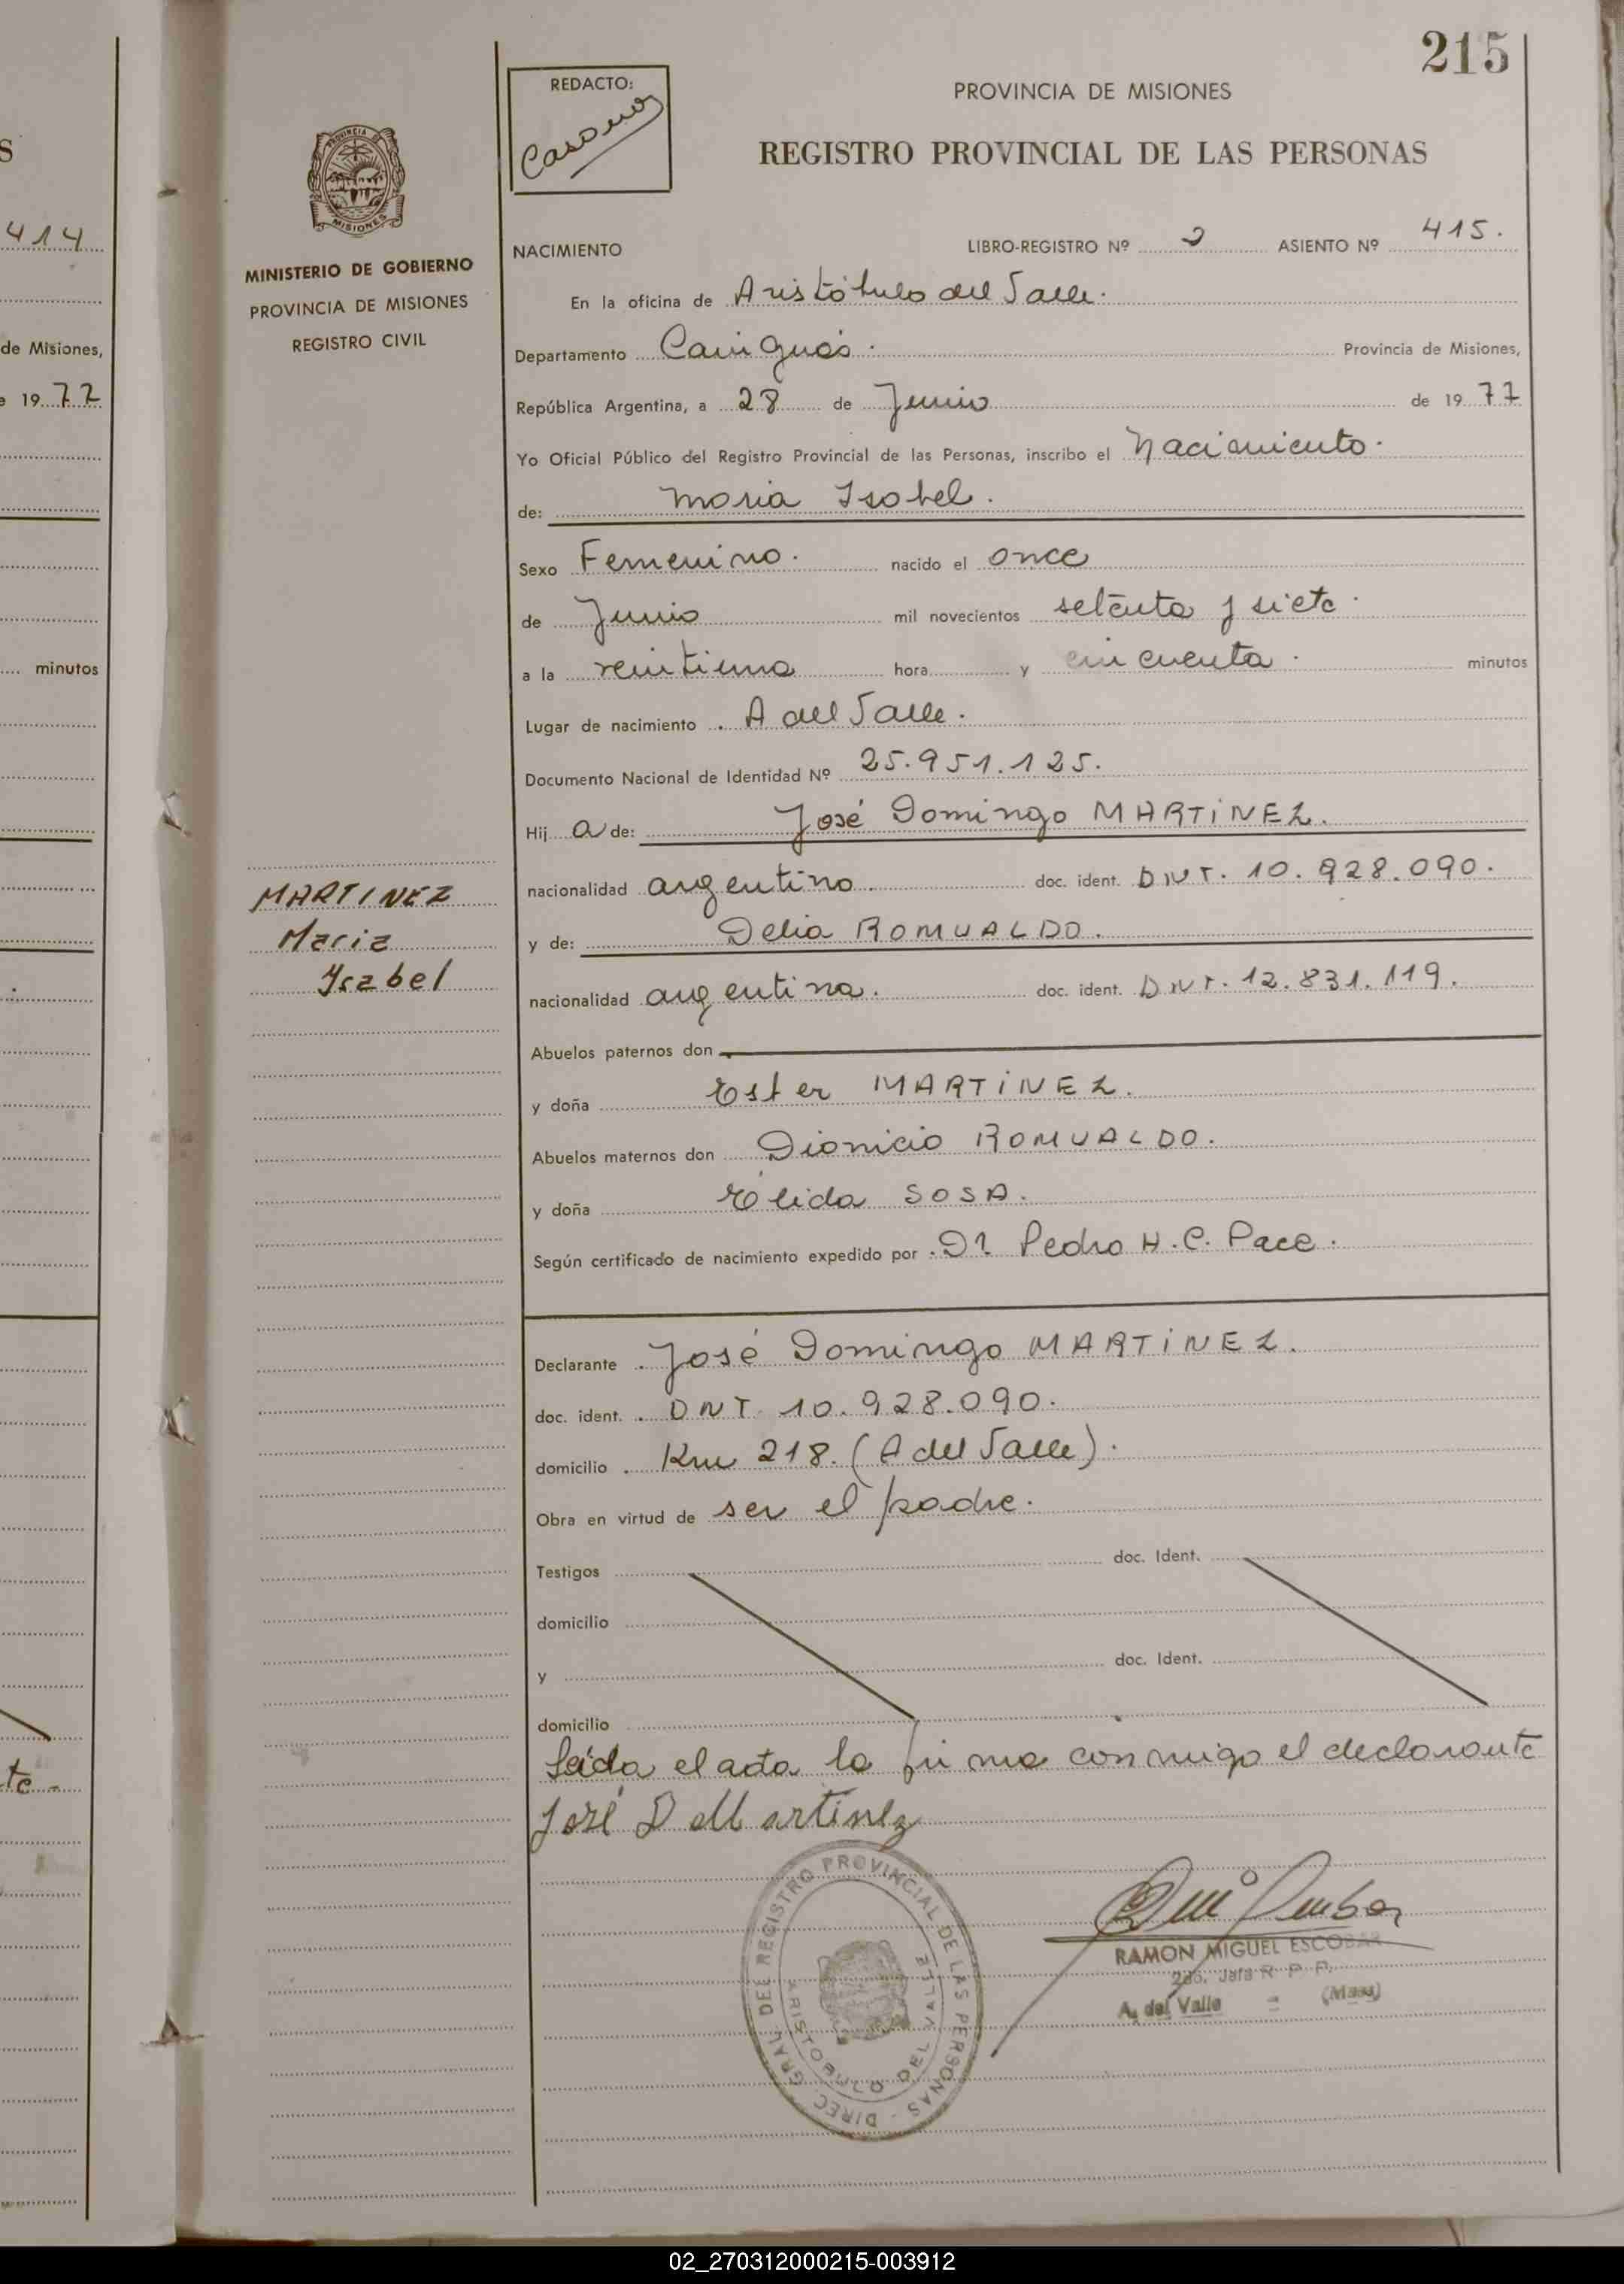 215
S
414
de Misiones,
e 1977
minutos
te -
PROVINCIA DE MISIONES
MINISTERIO DE GOBIERNO
PROVINCIA DE MISIONES
REGISTRO CIVIL
MARTINEZ
Maria
Ysabel
REDACTO:
PROVINCIA DE MISIONES
REGISTRO PROVINCIAL DE LAS PERSONAS
NACIMIENTO LIBRO-REGISTRO Nº 2 ASIENTO Nº 415.
En la oficina de Aristóbulo del Valle.
Departamento Cainguás. Provincia de Misiones,
República Argentina, a 28 de Junio de 1977
Yo Oficial Público del Registro Provincial de las Personas, inscribo el Nacimiento.
de: Maria Isabel.
Sexo Femenino. nacido el once
de Junio mil novecientos setenta y siete.
a la veintiuna hora y cincuenta. minutos
Lugar de nacimiento A del Valle.
Documento Nacional de Identidad Nº 25.951.125.
Hij a de: José Domingo MARTINEZ.
nacionalidad argentino doc. ident. DNI. 10.928.090.
y de: Delia ROMUALDO.
nacionalidad argentina. doc. ident. DNI. 12.831.119.
Abuelos paternos don
y doña Ester MARTINEZ.
Abuelos maternos don Dionicio ROMUALDO.
y doña Elida SOSA.
Según certificado de nacimiento expedido por Dr Pedro H.C. Pace.
Declarante José Domingo MARTINEZ.
doc. ident. DNI 10.928.090.
domicilio Km 218. (A del Valle).
Obra en virtud de ser el padre.
Testigos doc. Ident.
domicilio
y doc. Ident.
domicilio
Leida el acta la firma conmigo el declarante
José D Martinez
DIREC. GRAL. DEL REGISTRO PROVINCIAL DE LAS PERSONAS -
ARISTOBULO DEL VALLE
RAMON MIGUEL ESCOBAR
2do. Jefe R P P.
A. del Valle = (Mnes)
02_270312000215-003912